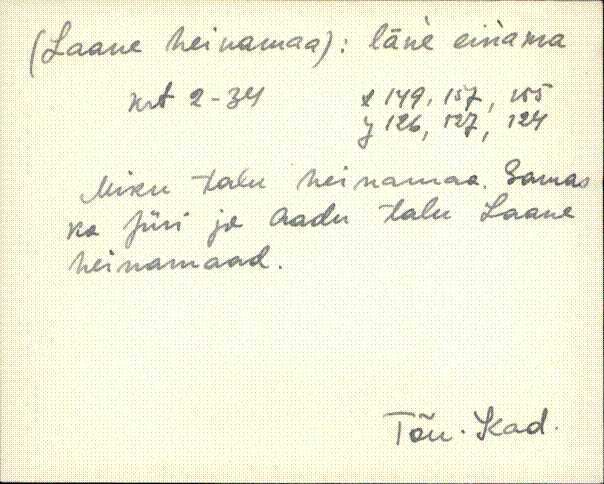 (Laane heinamaa): läne einama
krt 2-34 x 149, 157, 155
y 126, 127, 124
Miku talu heinamaa. Samas
ka Jüri ja Aadu talu Laane
heinamaad.
Tõu. Kad.